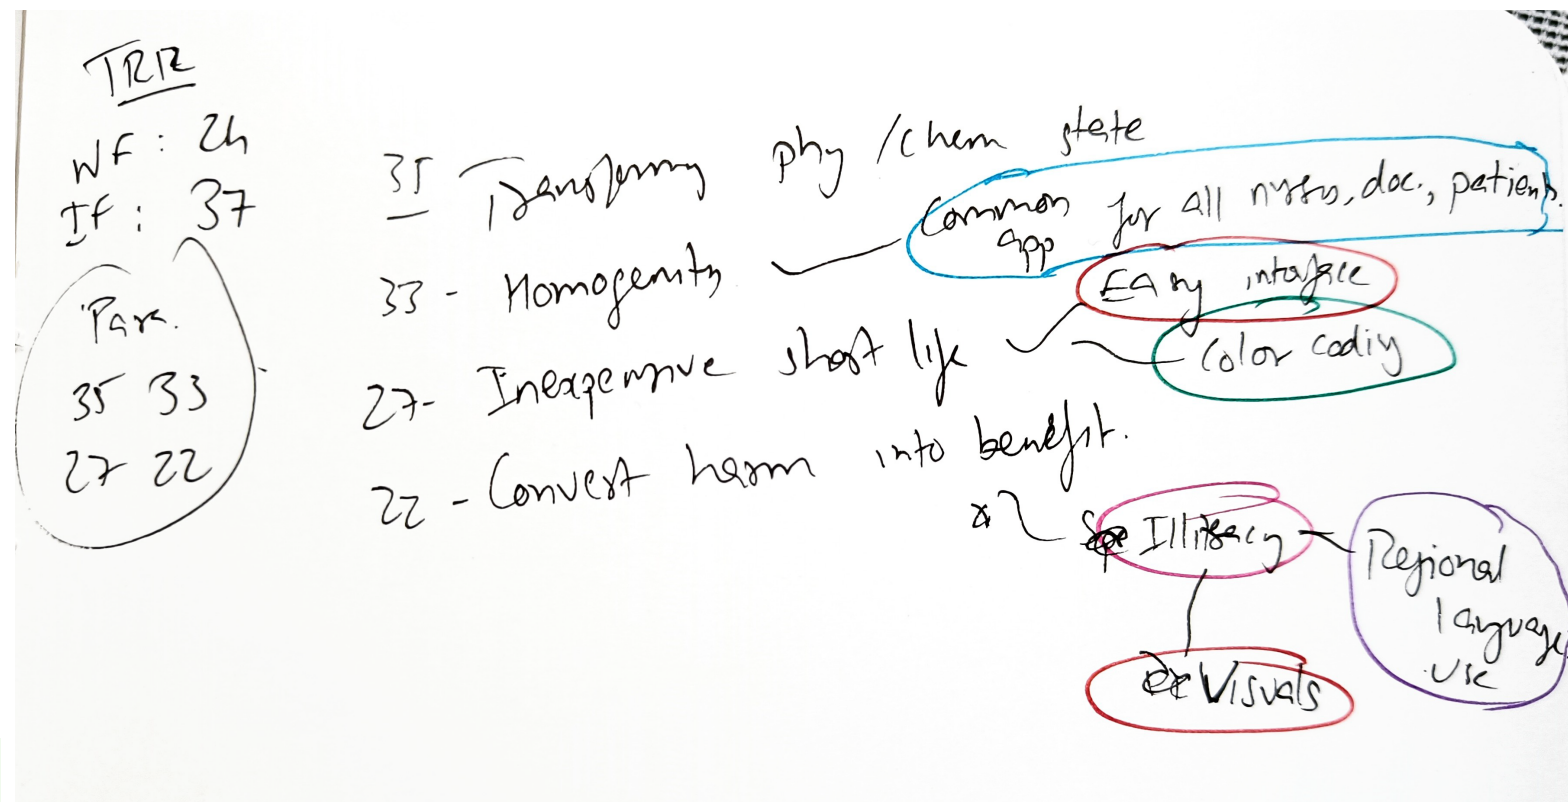 TRIZ
WF: 24
IF: 37
Para.
35 33
27 22
35 Transforming phy/chem state
33 - Homogenity
Common app for all nurses, doc., patients.
27- Inexpensive short life
Easy interface
Color coding
22 - Convert harm into benefit.
Illitracy
Regional
language
use
Visuals